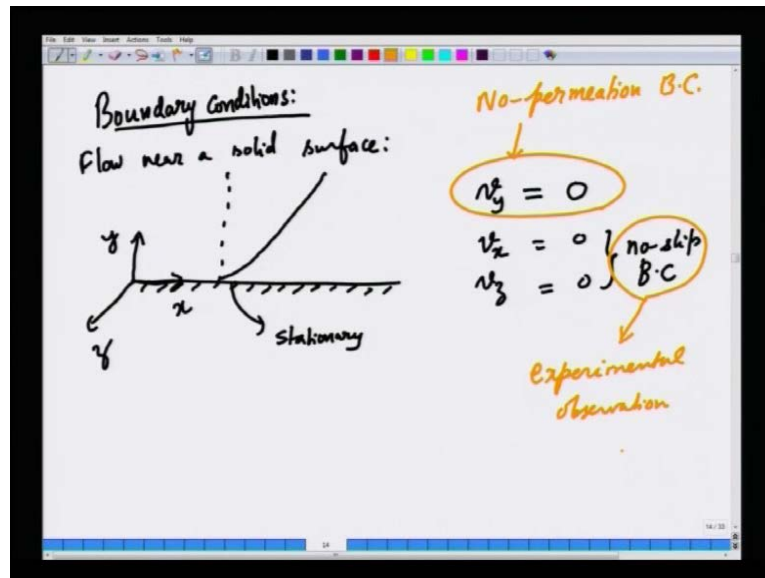 File Edit View Insert Actions Tools Help
Boundary Conditions:
Flow near a solid surface:
y
x
z
Stationary
No-permeation B.C.
v_y = 0
v_x = 0
v_z = 0
no-slip
B.C
experimental
observation
14/33
14